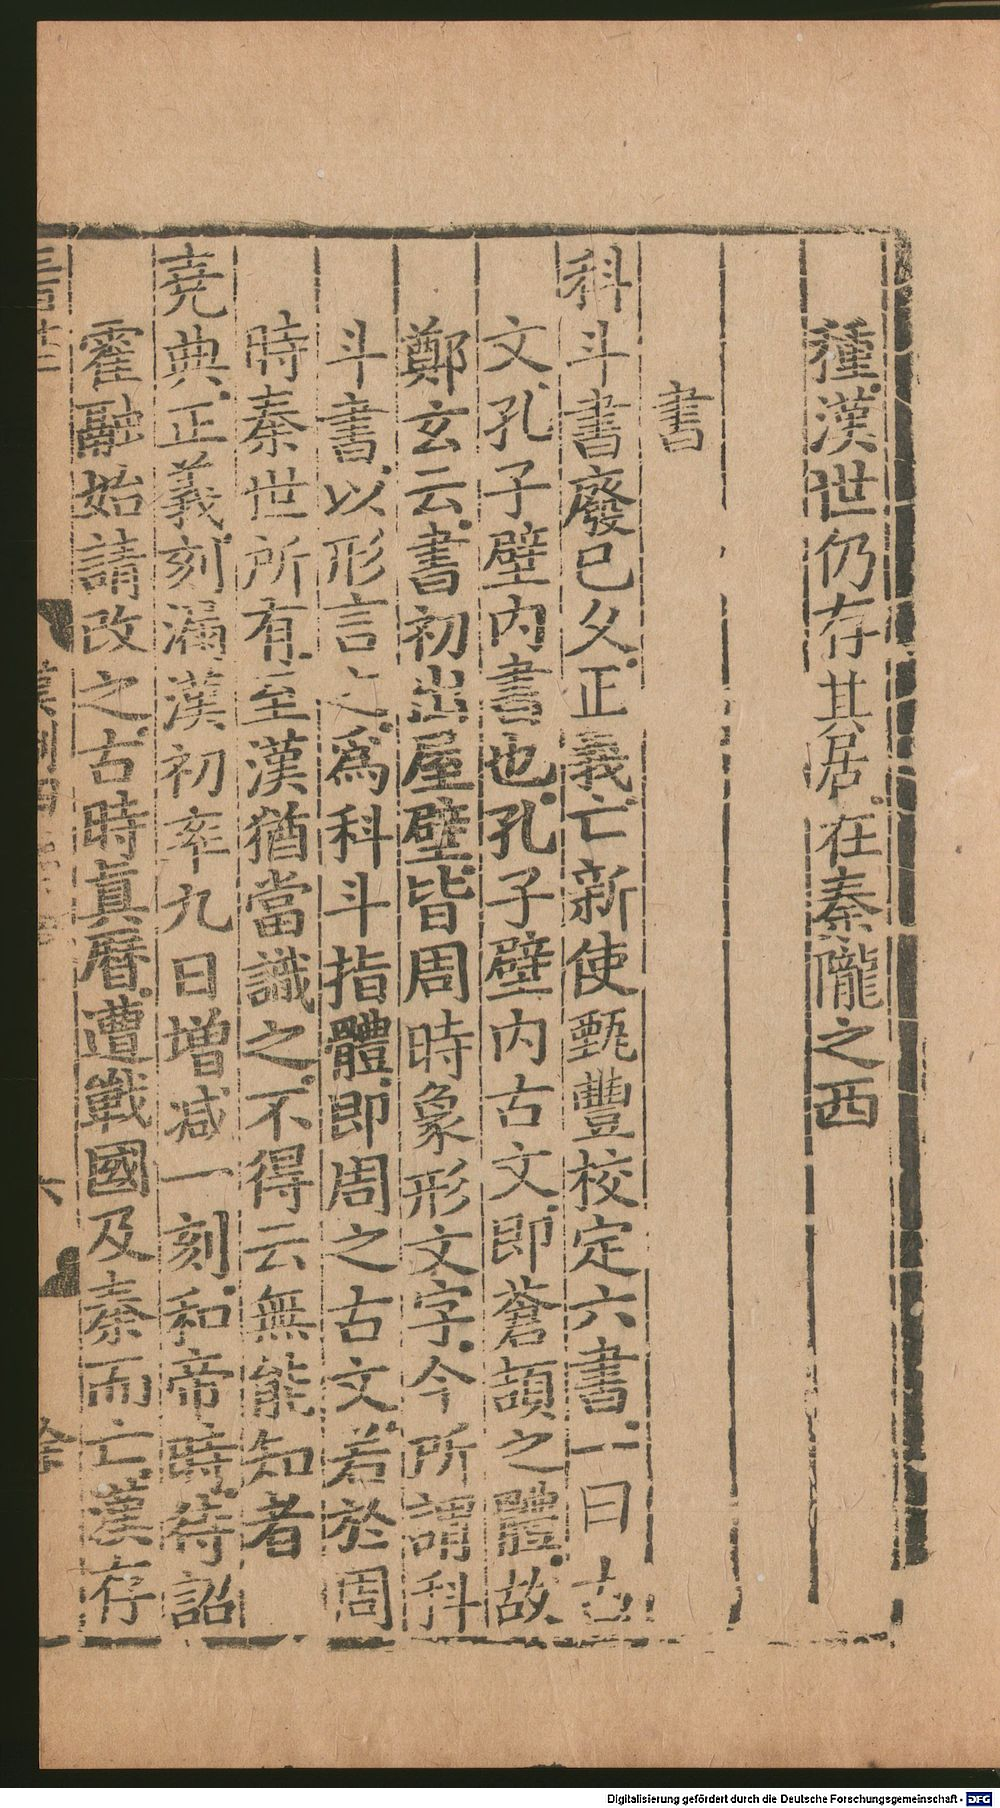 種漢世仍存其居在秦隴之西
書
科斗書廢已久正義亡新使甄豐校定六書一曰古
文孔子壁內書也孔子壁內古文即蒼頡之體故
鄭玄云書初出屋壁皆周時象形文字今所謂科
斗書以形言之為科斗指體即周之古文若於周
時秦世所有至漢猶當識之不得云無能知者
堯典正義刻漏漢初率九日增减一刻和帝時待詔
霍融始請改之古時真曆遭戰國及秦而亡漢存
Digitalisierung gefördert durch die Deutsche Forschungsgemeinschaft - DFG